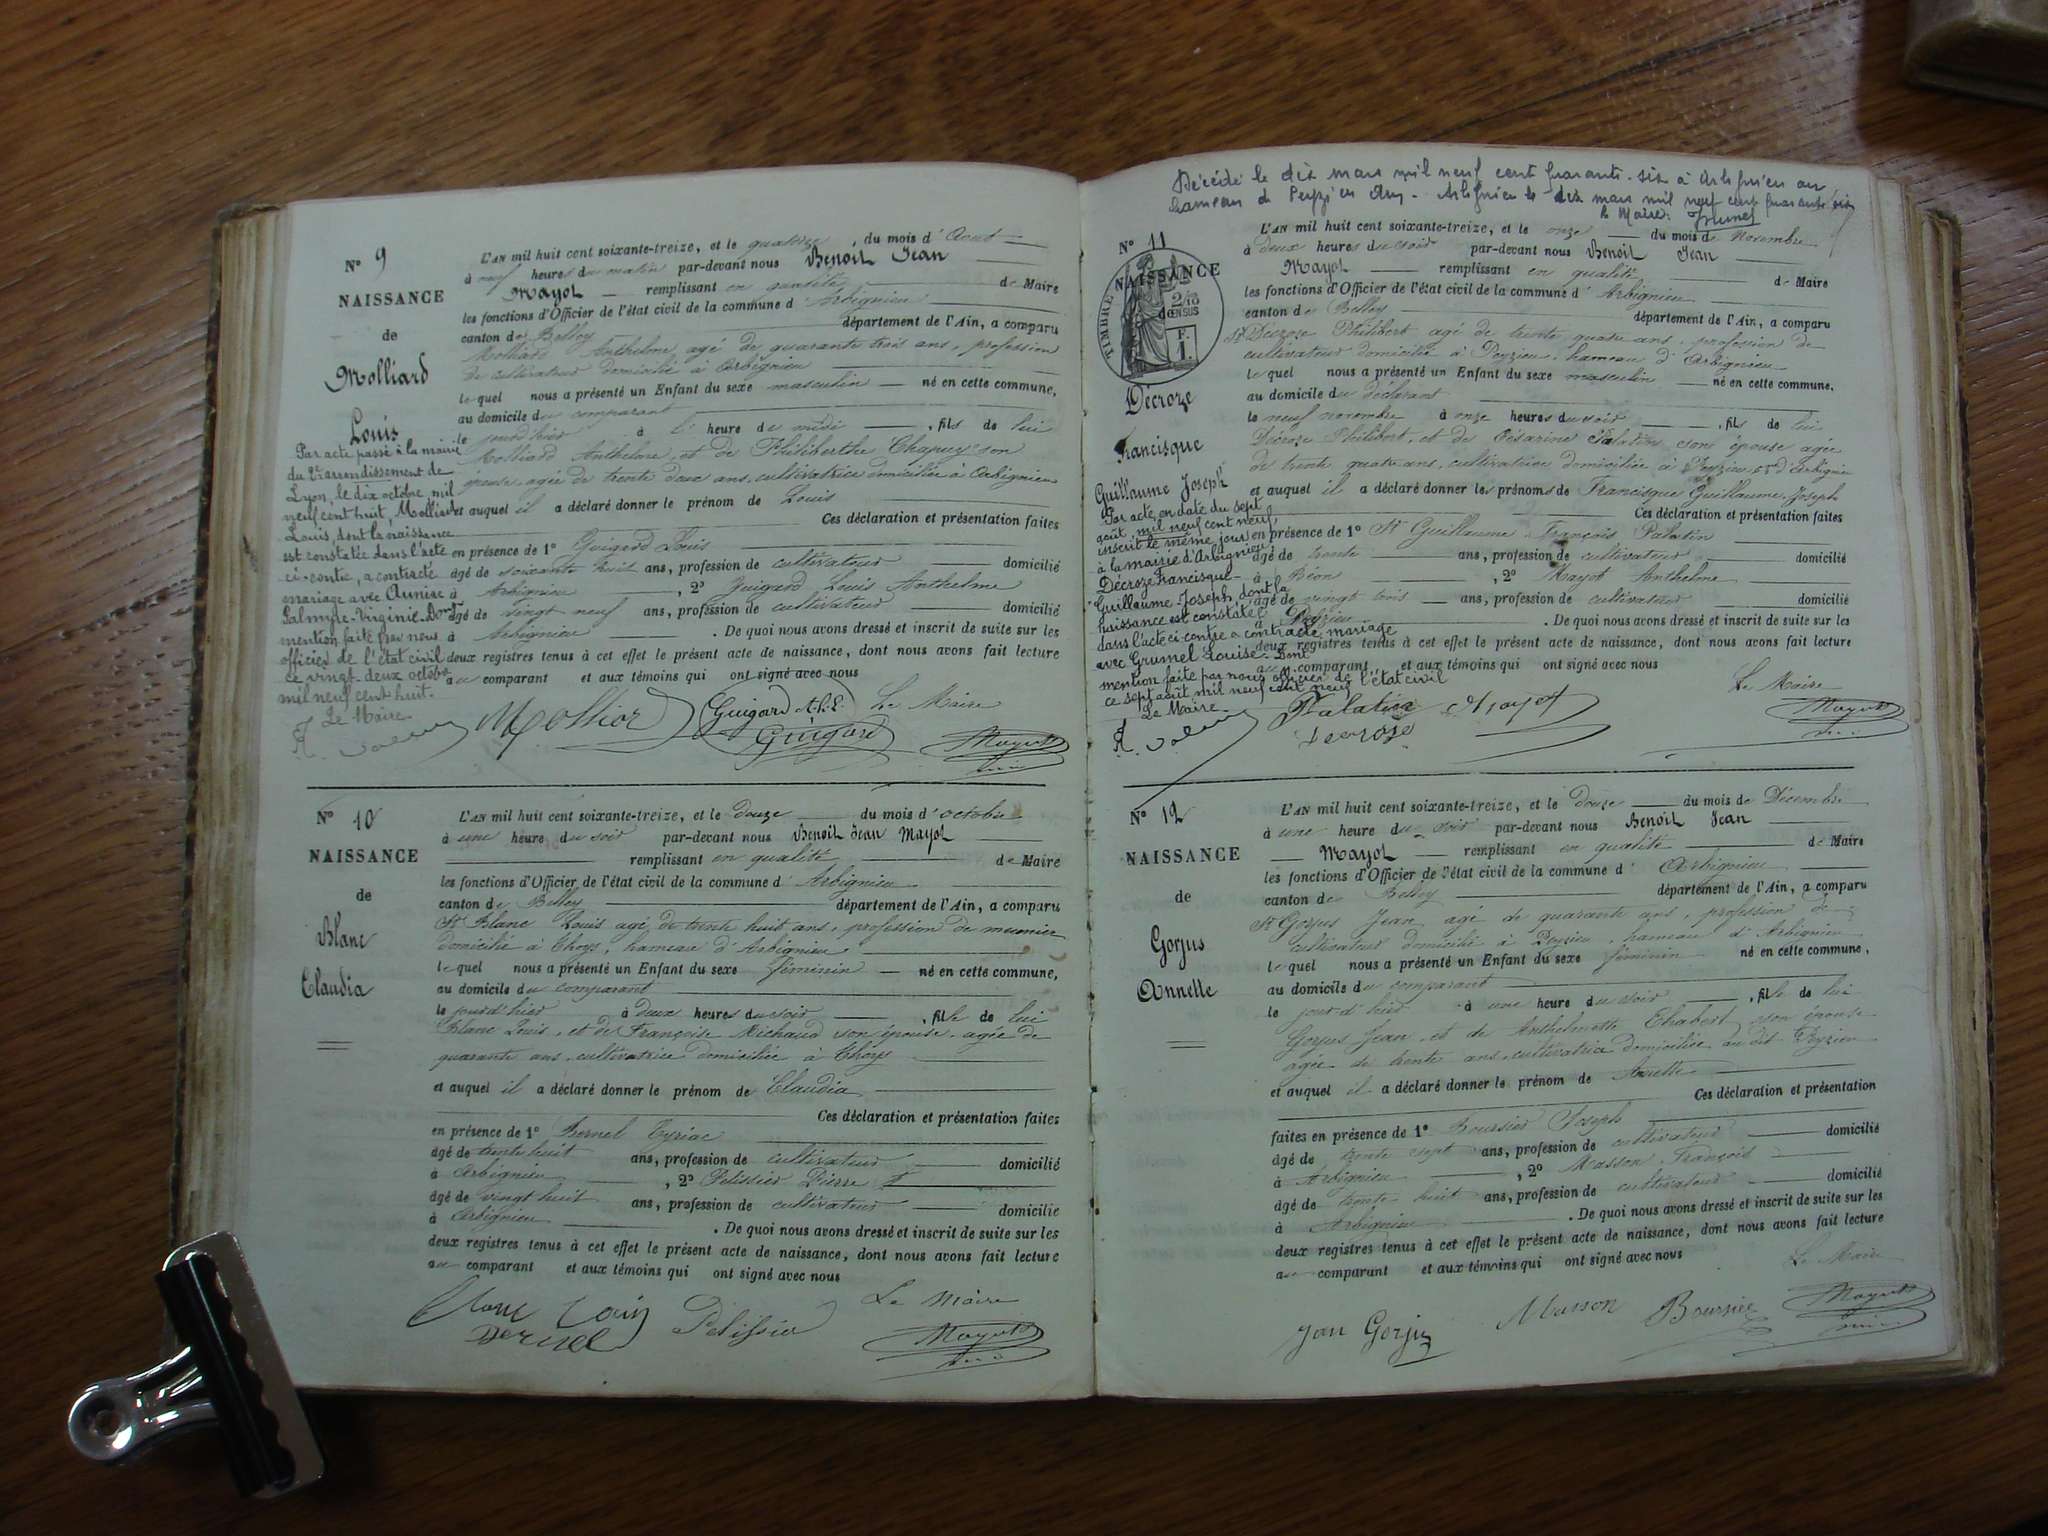 N° 9
NAISSANCE
de
Molliard
Louis
Par acte passé à la mairie
du 2e arrondissement de
Lyon, le dix octobre mil
neuf cent huit, Molliard
Louis, dont la naissance
est constatée dans l'acte
ci-contre, a contracté
mariage avec
Palmyre-Virginie. Dont
mention faite par nous
officier de l'état civil
ce vingt-deux octobre
mil neuf cent huit.
Le Maire
L'AN mil huit cent soixante-treize, et le quatorze du mois d'Aout
à neuf heures du matin par-devant nous Benoit Jean
Mayot remplissant en qualité de Maire
les fonctions d'Officier de l'état civil de la commune d'Arbignieu
canton de Belley département de l'Ain, a comparu
Molliard Anthelme agé de quarante trois ans, profession
de cultivateur domicilié à Arbignieu
le quel nous a présenté un Enfant du sexe masculin né en cette commune,
au domicile du comparant
le jourd'hier à l' heure de midi, fils de lui
Molliard Anthelme, et de Philiberthe Chapuy son
épouse agée de trente deux ans, cultivatrice domiciliée à Arbignieu
et auquel il a déclaré donner le prénom de Louis
Ces déclaration et présentation faites
en présence de 1° Guigard Louis
âgé de soixante huit ans, profession de cultivateur domicilié
à Arbignieu, 2° Guigard Louis Anthelme
âgé de vingt neuf ans, profession de cultivateur domicilié
à Arbignieu. De quoi nous avons dressé et inscrit de suite sur les
deux registres tenus à cet effet le présent acte de naissance, dont nous avons fait lecture
au comparant et aux témoins qui ont signé avec nous
Mollior Guigard Le Maire
Guigard Mayot
N° 10
NAISSANCE
de
Blanc
Claudia
L'AN mil huit cent soixante-treize, et le douze du mois d'octobre
à une heure du soir par-devant nous Benoit Jean Mayot
remplissant en qualité de Maire
les fonctions d'Officier de l'état civil de la commune d'Arbignieu
canton de Belley département de l'Ain, a comparu
St Blanc Louis agé de trente huit ans, profession de meunier
domicilié à Thoys, hameau d'Arbignieu
le quel nous a présenté un Enfant du sexe féminin né en cette commune,
au domicile du comparant
le jourd'hier à deux heures du soir, fille de lui
Blanc Louis, et de Françoise Michaud son épouse agée de
quarante ans, cultivatrice domiciliée à Thoys
et auquel il a déclaré donner le prénom de Claudia
Ces déclaration et présentation faites
en présence de 1° Bernel Cyriac
âgé de trente huit ans, profession de cultivateur domicilié
à Arbignieu, 2° Pelissier Pierre
âgé de vingt huit ans, profession de cultivateur domicilié
à Arbignieu. De quoi nous avons dressé et inscrit de suite sur les
deux registres tenus à cet effet le présent acte de naissance, dont nous avons fait lecture
au comparant et aux témoins qui ont signé avec nous
Blanc Louis Pelissier Le Maire
Bernel Mayot
Décédé le dix mars mil neuf cent quarante-six à Arbignieu au
hameau de Peyzieu. Arbignieu le dix mars mil neuf cent quarante six
le Maire:
N° 11
NAISSANCE
TIMBRE
2/10
EN SUS
F.
1.
Décroze
Francisque
Guillaume Joseph
Par acte en date du sept
août mil neuf cent neuf,
inscrit le même jour
à la mairie d'Arbignieu
Décroze Francisque-
Guillaume Joseph dont la
naissance est constatée
dans l'acte ci-contre a contracté mariage
avec Grumel Louise. Dont
mention faite par nous officier de l'état civil
ce sept août mil neuf cent neuf
Le Maire
L'AN mil huit cent soixante-treize, et le onze du mois de Novembre
à deux heures du soir par-devant nous Benoit Jean
Mayot remplissant en qualité de Maire
les fonctions d'Officier de l'état civil de la commune d'Arbignieu
canton de Belley département de l'Ain, a comparu
St Décroze Philibert agé de trente quatre ans, profession de
cultivateur domicilié à Peyzieu, hameau d'Arbignieu
le quel nous a présenté un Enfant du sexe masculin né en cette commune,
au domicile du déclarant
le neuf novembre à onze heures du soir, fils de lui
Décroze Philibert, et de Césarine Palatin son épouse agée
de trente quatre ans, cultivatrice domiciliée à Peyzieu d'Arbignieu
et auquel il a déclaré donner les prénoms de Francisque Guillaume Joseph
Ces déclaration et présentation faites
en présence de 1° St Guillaume François Palatin
âgé de trente ans, profession de cultivateur domicilié
à Béon, 2° Mayot Anthelme
âgé de vingt trois ans, profession de cultivateur domicilié
à Peyzieu. De quoi nous avons dressé et inscrit de suite sur les
deux registres tenus à cet effet le présent acte de naissance, dont nous avons fait lecture
au comparant et aux témoins qui ont signé avec nous
Le Maire
Palatin Mayot Mayot
Decroze
N° 12
NAISSANCE
de
Gorjus
Annette
L'AN mil huit cent soixante-treize, et le douze du mois de Décembre
à une heure du soir par-devant nous Benoit Jean
Mayot remplissant en qualité de Maire
les fonctions d'Officier de l'état civil de la commune d'Arbignieu
canton de Belley département de l'Ain, a comparu
St Gorjus Jean agé de quarante ans, profession de
cultivateur domicilié à Peyzieu hameau d'Arbignieu
le quel nous a présenté un Enfant du sexe féminin né en cette commune,
au domicile du comparant
le jour d'hier à une heure du soir, fille de lui
Gorjus Jean et de Anthelmette Chabert son épouse
agée de trente ans cultivatrice domiciliée au dit Peyzieu
et auquel il a déclaré donner le prénom de Annette
Ces déclaration et présentation
faites en présence de 1° Boursier Joseph
âgé de trente sept ans, profession de cultivateur domicilié
à Arbignieu, 2° Masson François
âgé de trente huit ans, profession de cultivateur domicilié
à Arbignieu. De quoi nous avons dressé et inscrit de suite sur les
deux registres tenus à cet effet le présent acte de naissance, dont nous avons fait lecture
au comparant et aux témoins qui ont signé avec nous
Le Maire
Jan Gorjus Masson Boursier Mayot